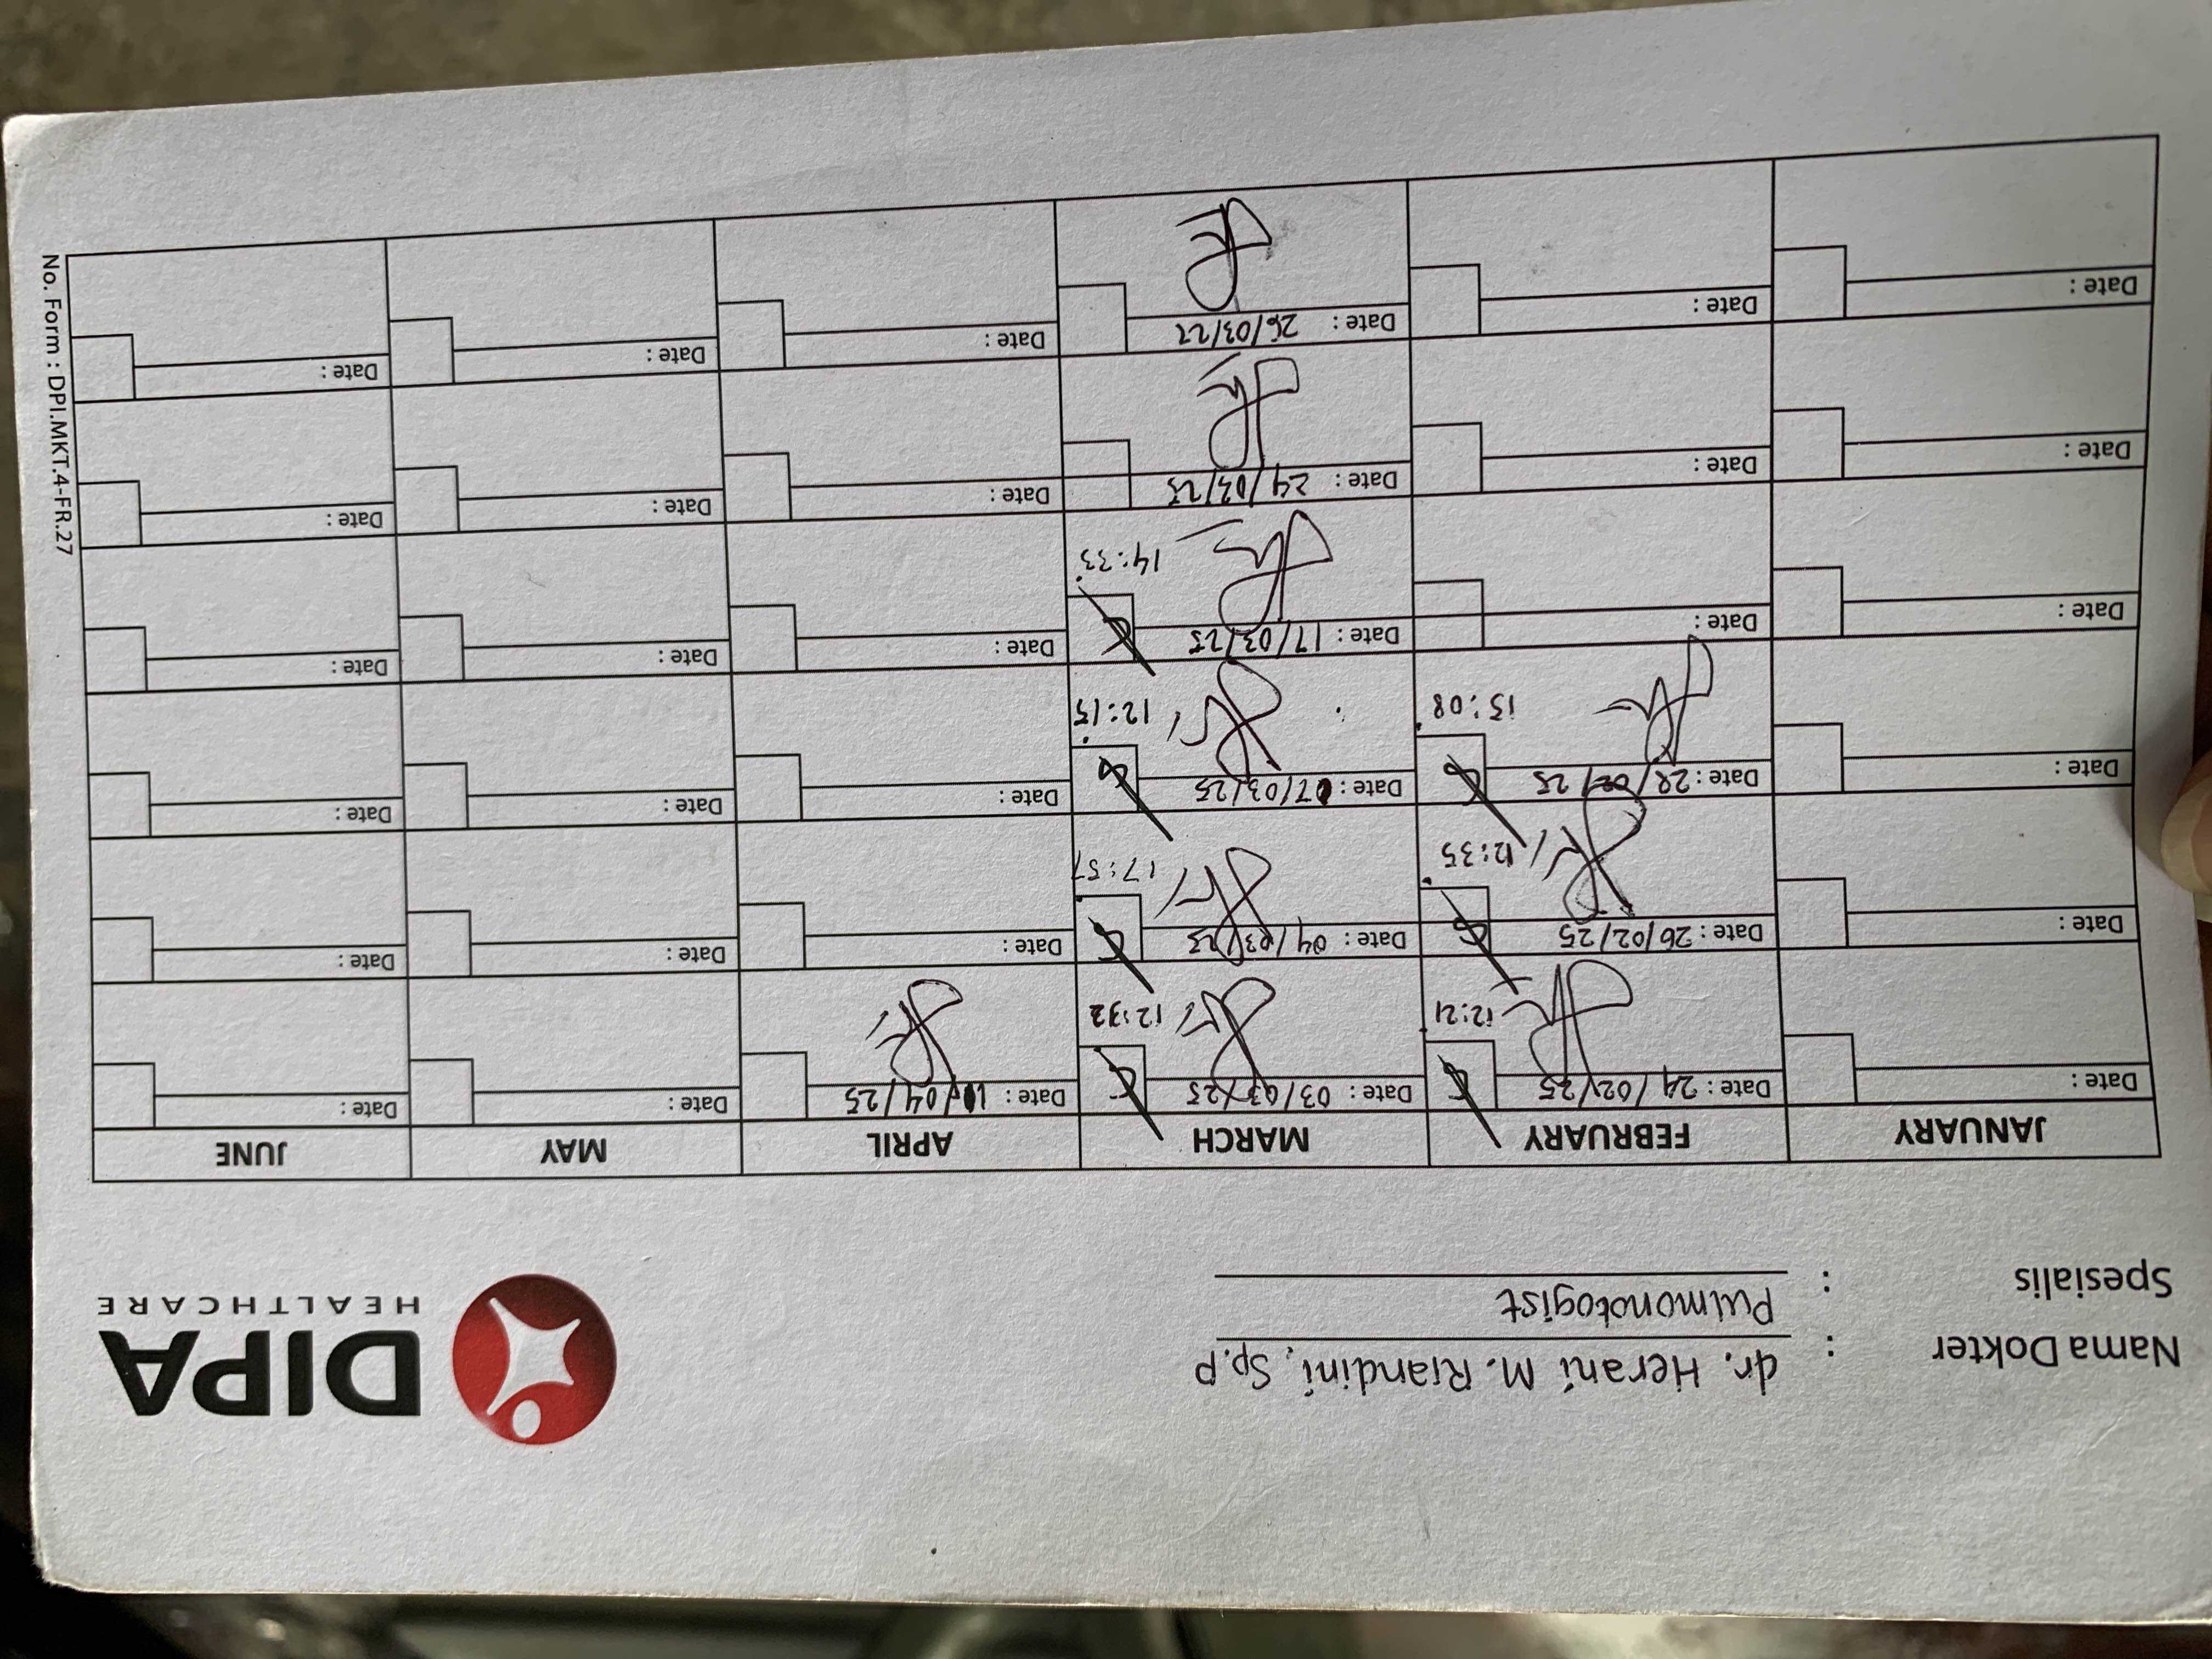 Nama Dokter : dr. Herani M. Riandini, Sp.P
Spesialis : Pulmonologist
DIPA
HEALTHCARE
JANUARY FEBRUARY MARCH APRIL MAY JUNE
Date : Date : 24/02/25 Date : 03/03/25 Date : /04/25 Date : Date :
12:21 12:32
Date : Date : 26/02/25 Date : 04/03/25 Date : Date : Date :
12:35 17:57
Date : Date : 28/02/25 Date : 07/03/25 Date : Date : Date :
15:08 12:15
Date : Date : Date : 17/03/25 Date : Date : Date :
14:33
Date : Date : Date : 24/03/25 Date : Date : Date :
Date : Date : Date : 26/03/ Date : Date : Date :
No. Form : DPI.MKT.4-FR.27